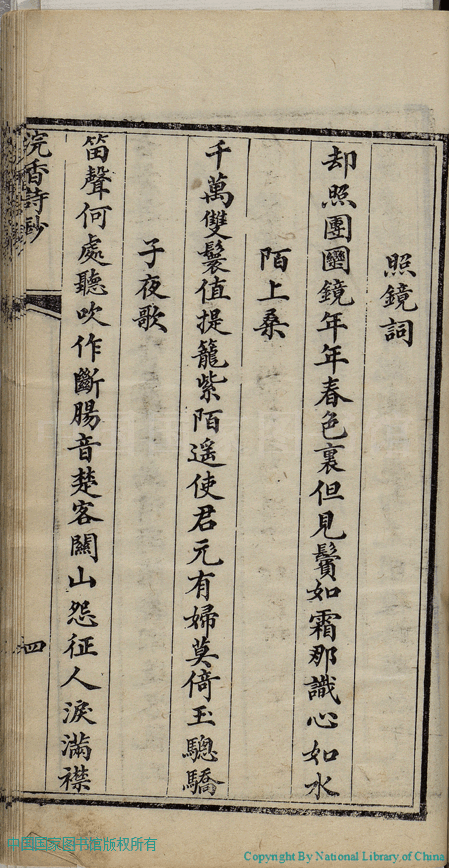 照鏡詞
却照團圞鏡年年春色裏但見鬢如霜那識心如水
陌上桑
千萬雙鬟值提籠紫陌遥使君元有婦莫倚玉驄驕
子夜歌
笛聲何處聽吹作斷腸音楚客關山怨征人淚滿襟
浣香詩鈔
四
中国国家图书馆版权所有
Copyright By National Library of China